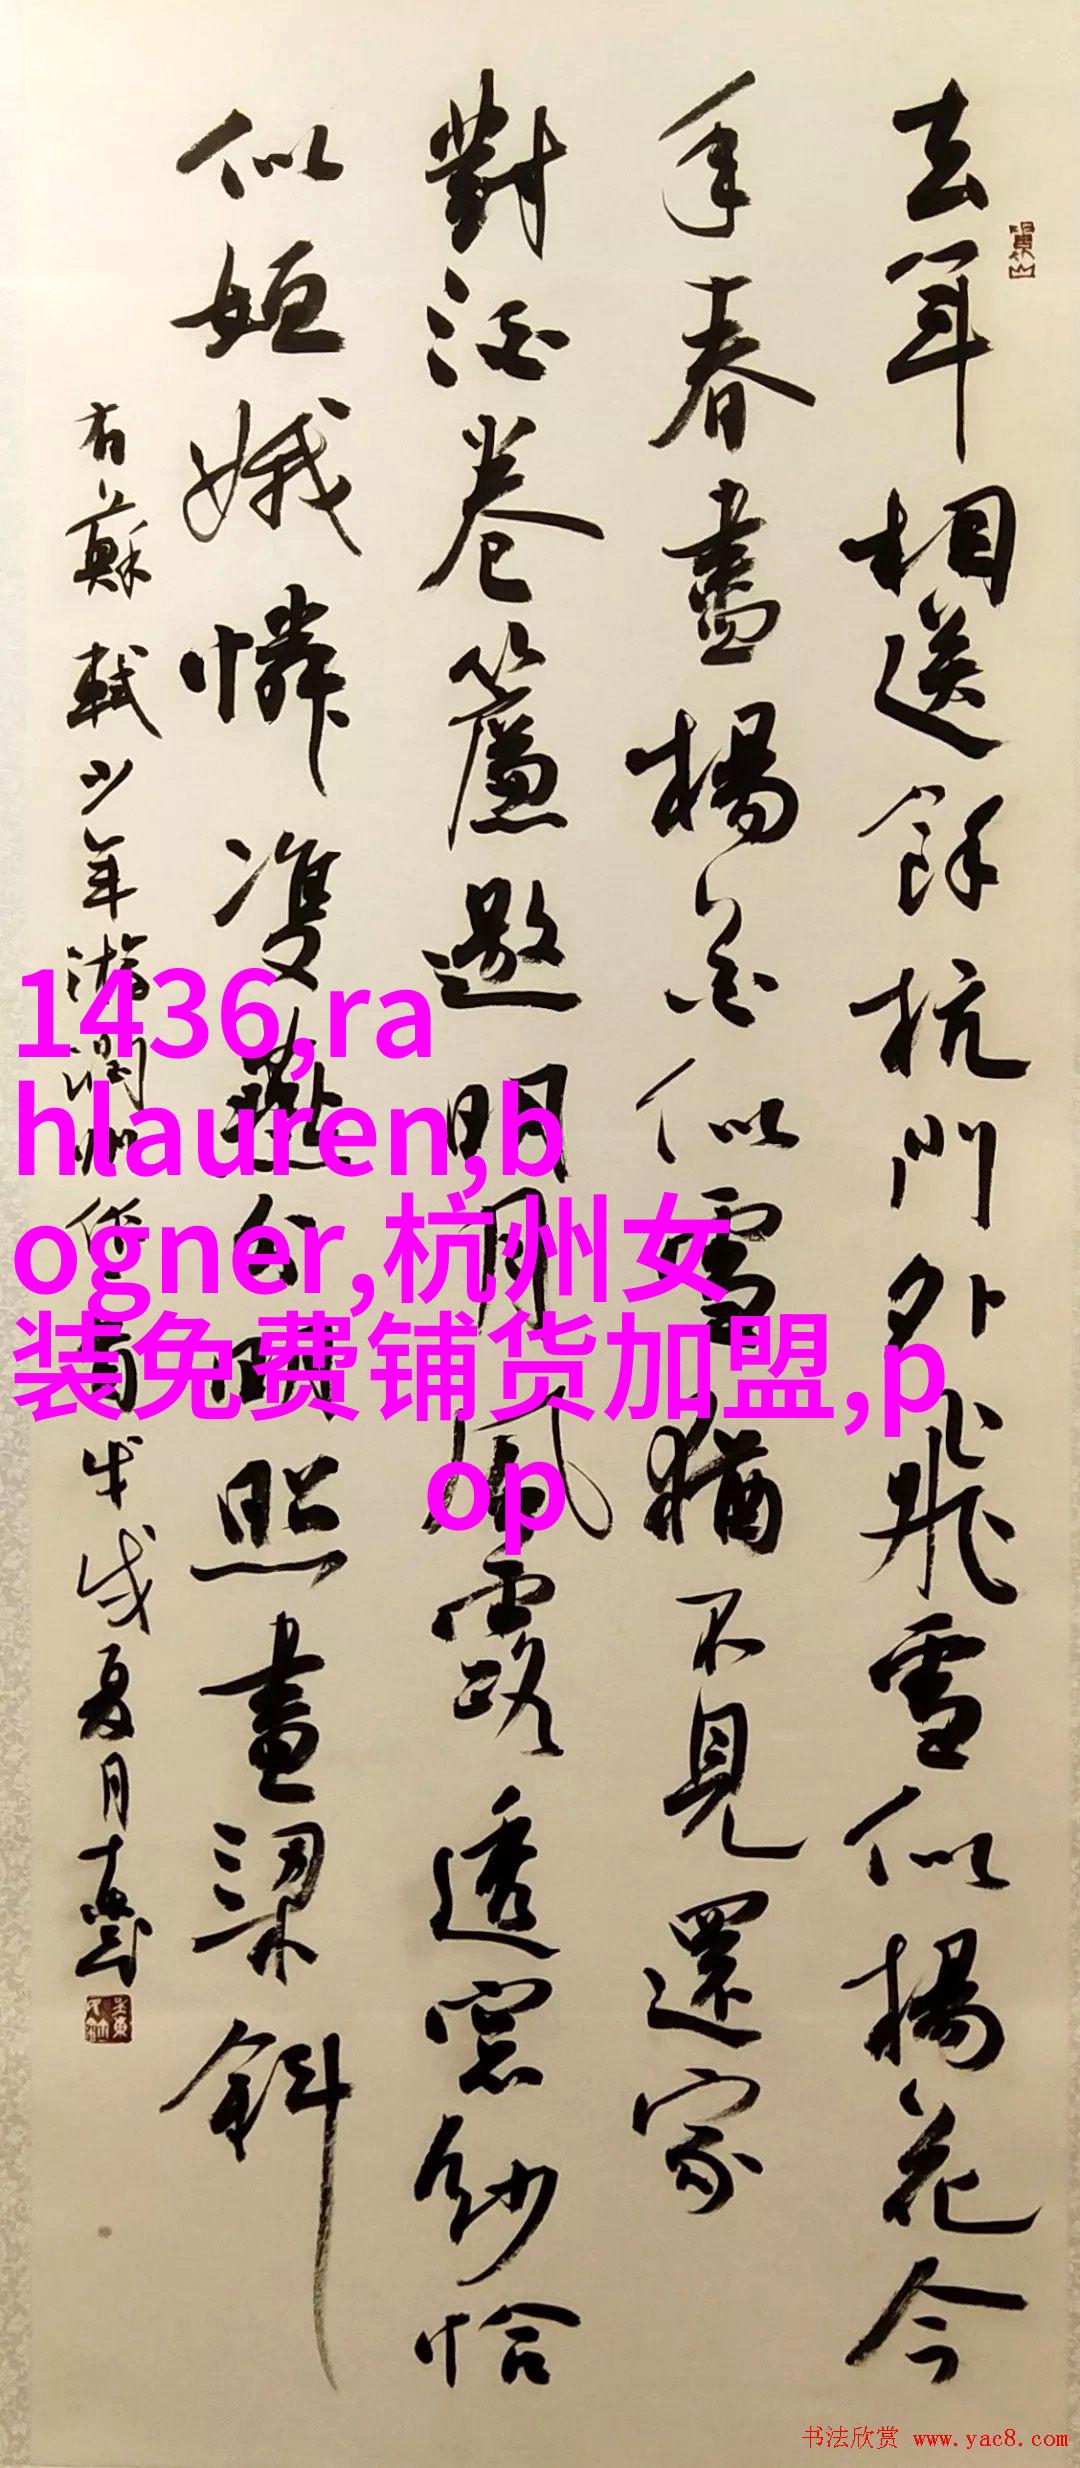 去年相送餘杭門外飛雪似楊花今
年春盡楊花似雪猶不見還家
對酒卷簾邀明月風露透窗紗恰
似姮娥憐雙燕分明照畫梁斜
右蘇軾少年游潤州作首戊戌夏月
1436,ra
hlauren,b
ogner,杭州女
装免费铺货加盟,p
op
书法欣赏 www.yac8.com